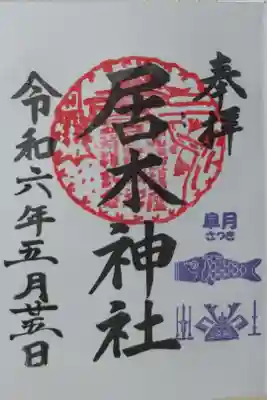 奉拝
皐月
さつき
居木神社
令和六年五月廿五日